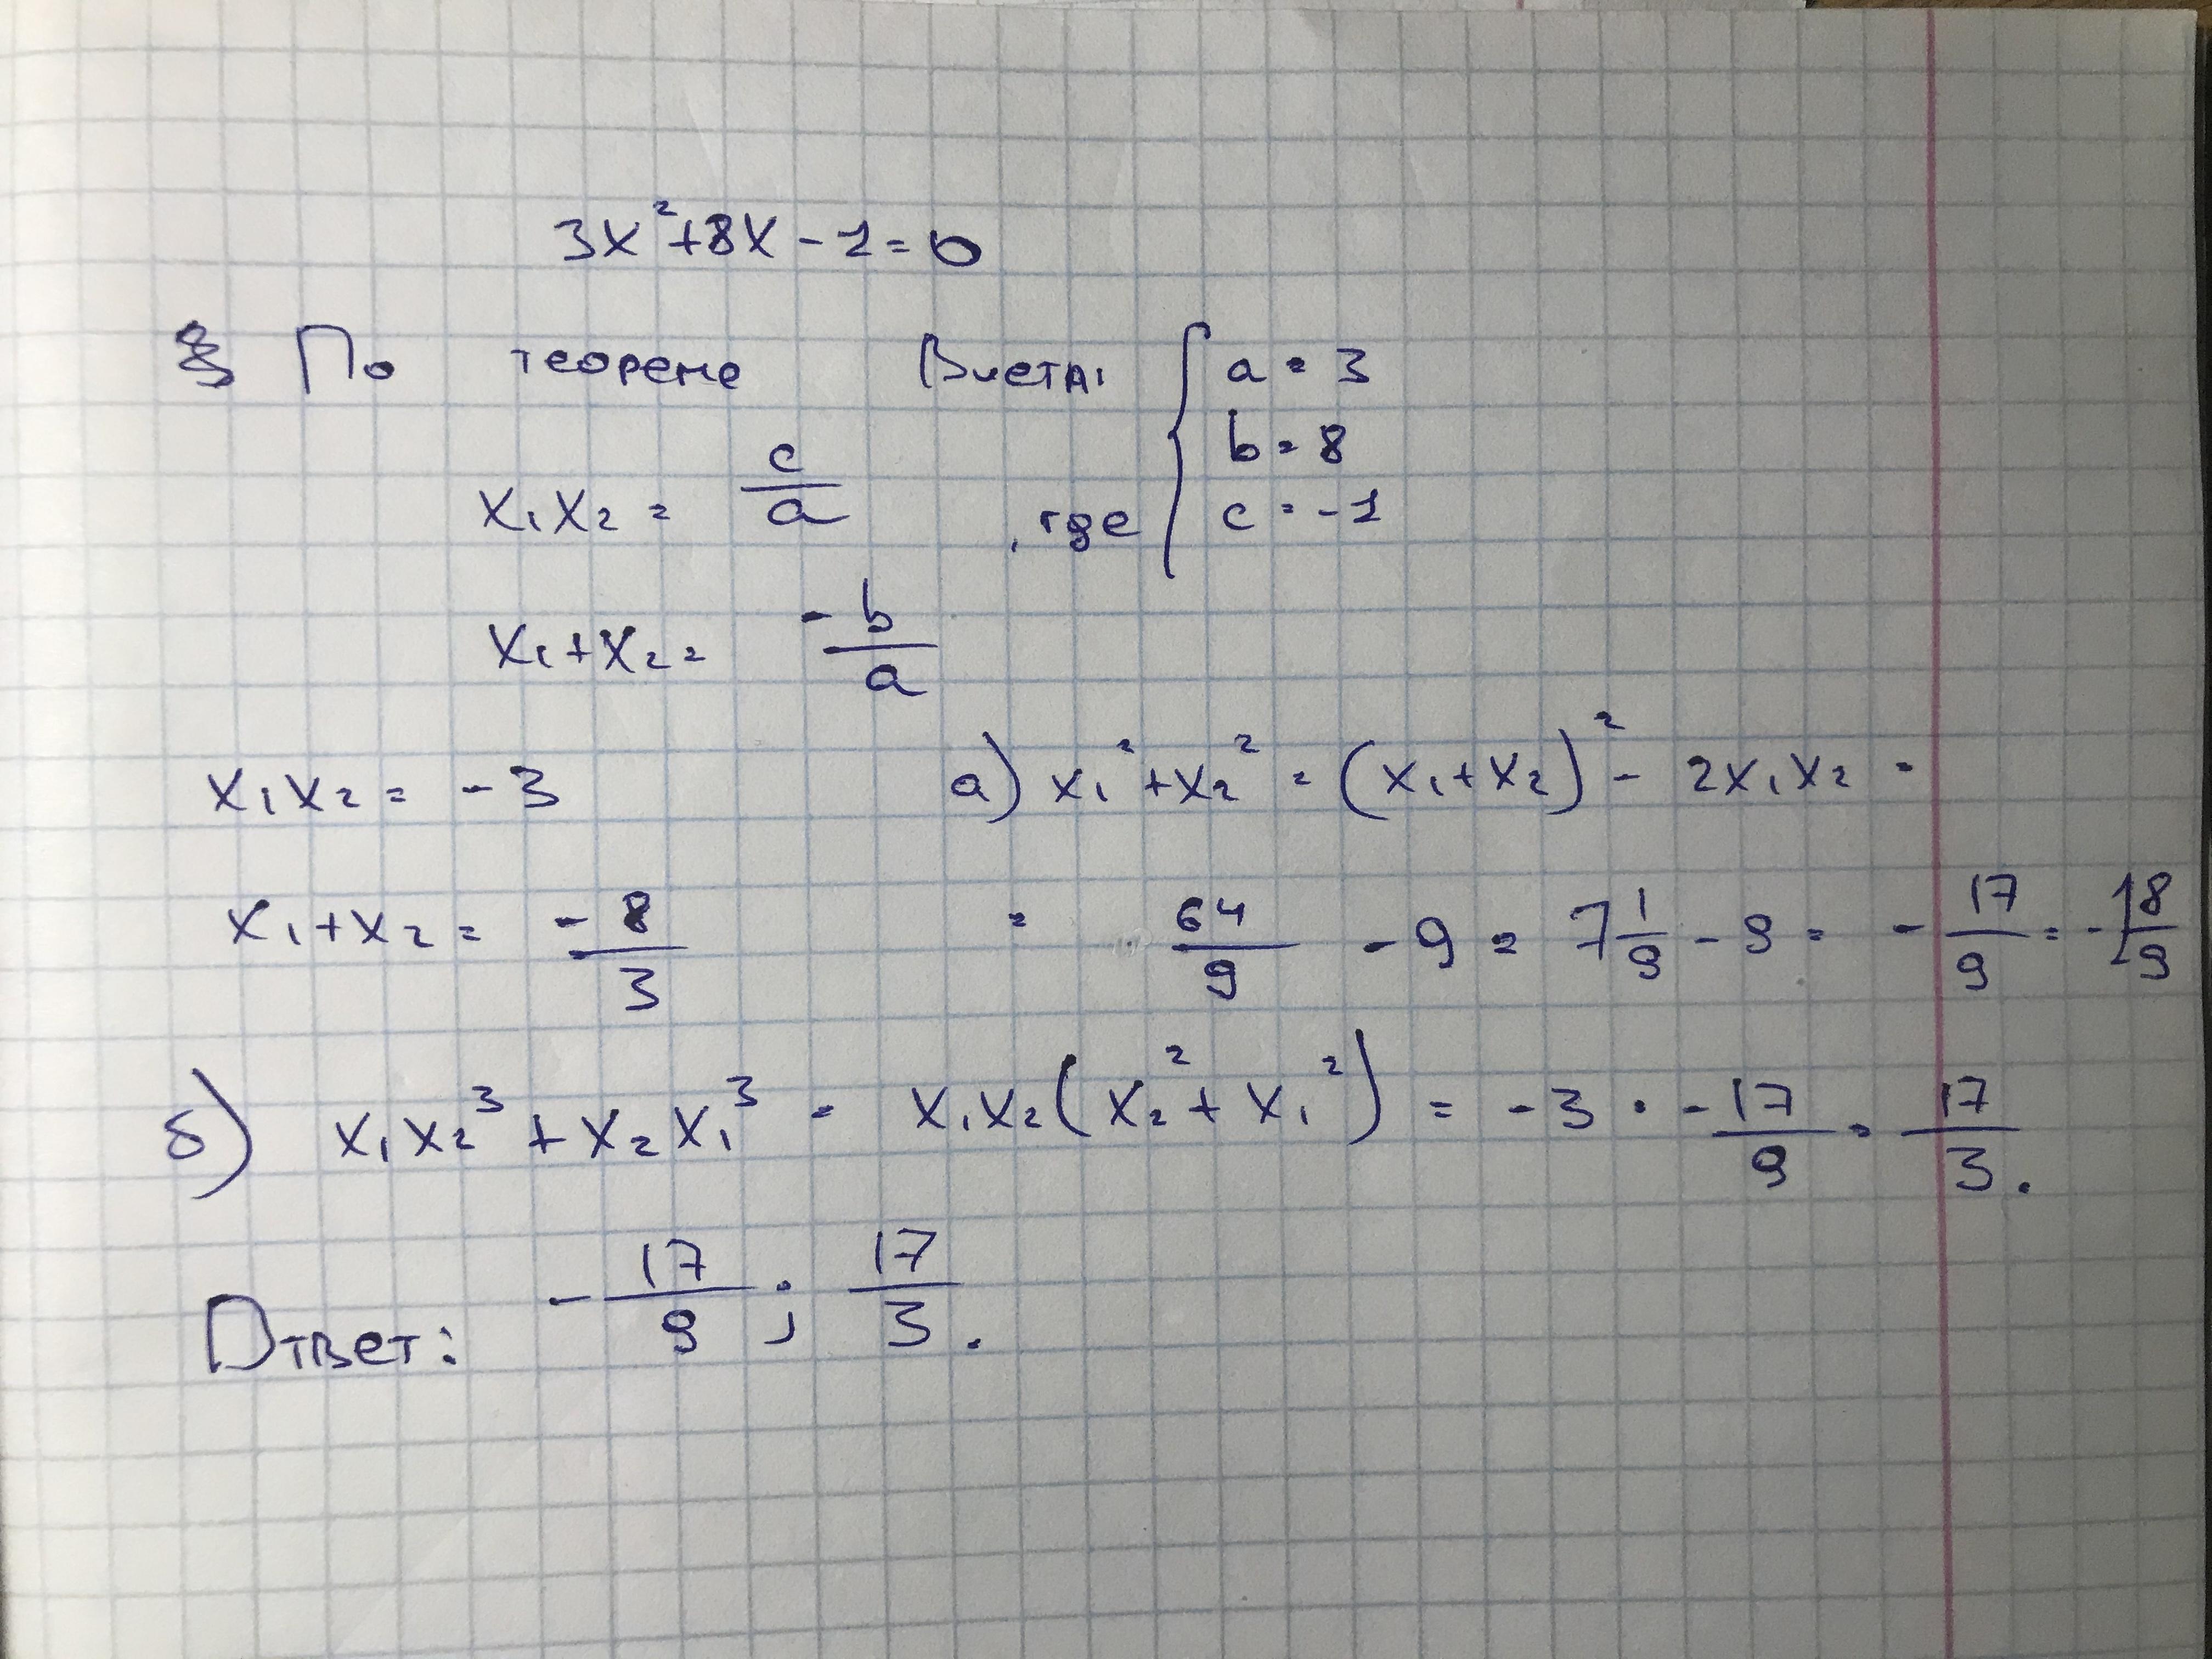 3x²+8x-1=0
По теореме Виета:
x₁x₂ = c/a , где { a = 3
b = 8
c = -1
x₁+x₂ = -b/a
x₁x₂ = -3
x₁+x₂ = -8/3
а) x₁²+x₂² = (x₁+x₂)² - 2x₁x₂ =
= 64/9 - 9 = 7 1/9 - 9 = - 17/9 = -1 8/9
б) x₁x₂³ + x₂x₁³ = x₁x₂(x₂² + x₁²) = -3 · -17/9 = 17/3.
Ответ: -17/9 ; 17/3.